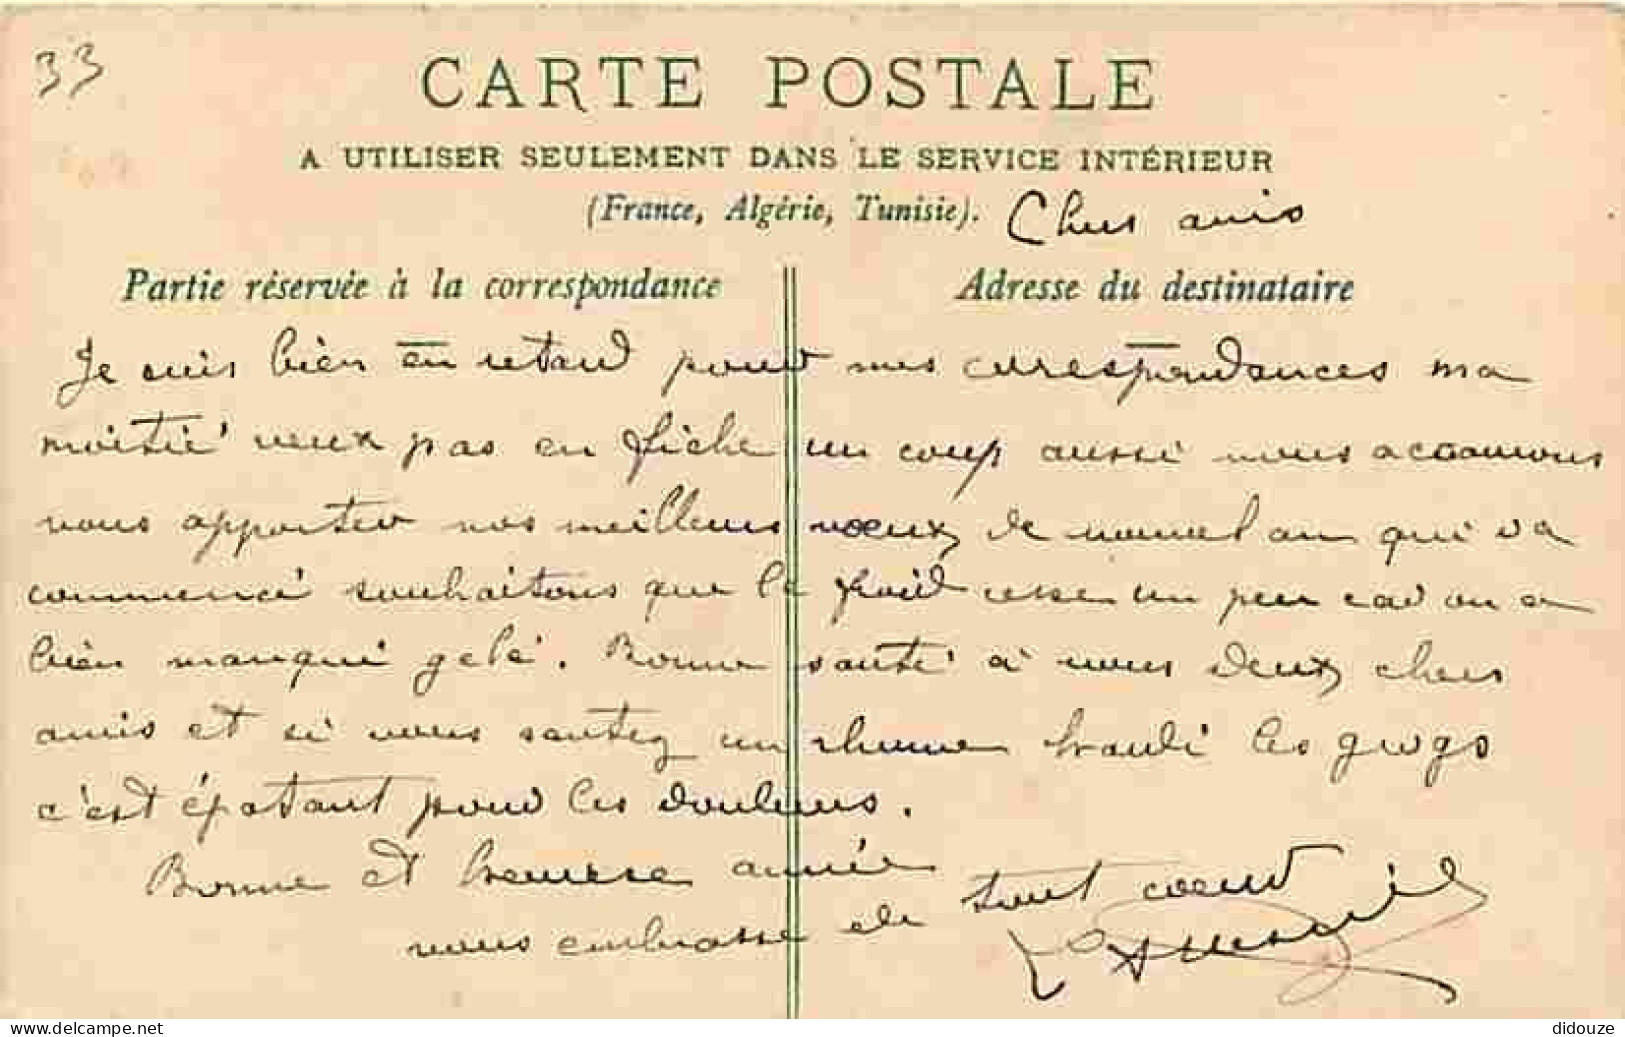 33
CARTE POSTALE
A UTILISER SEULEMENT DANS LE SERVICE INTÉRIEUR
(France, Algérie, Tunisie).
Chers amis
Partie réservée à la correspondance
Adresse du destinataire
Je suis bien en retard pour mes correspondances ma
moitié veux pas en fiche un coup aussi nous
vous apporter nos meilleurs voeux de nouvel an qui va
commencé souhaitons que le froid cesse un peu car on a
bien manqué gelé. Bonne santé à vous deux chers
amis et si vous sentez un rhume les grogs
c'est épatant pour les douleurs.
Bonne et heureuse année
vous embrasse de tout coeur
www.delcampe.net
didouze